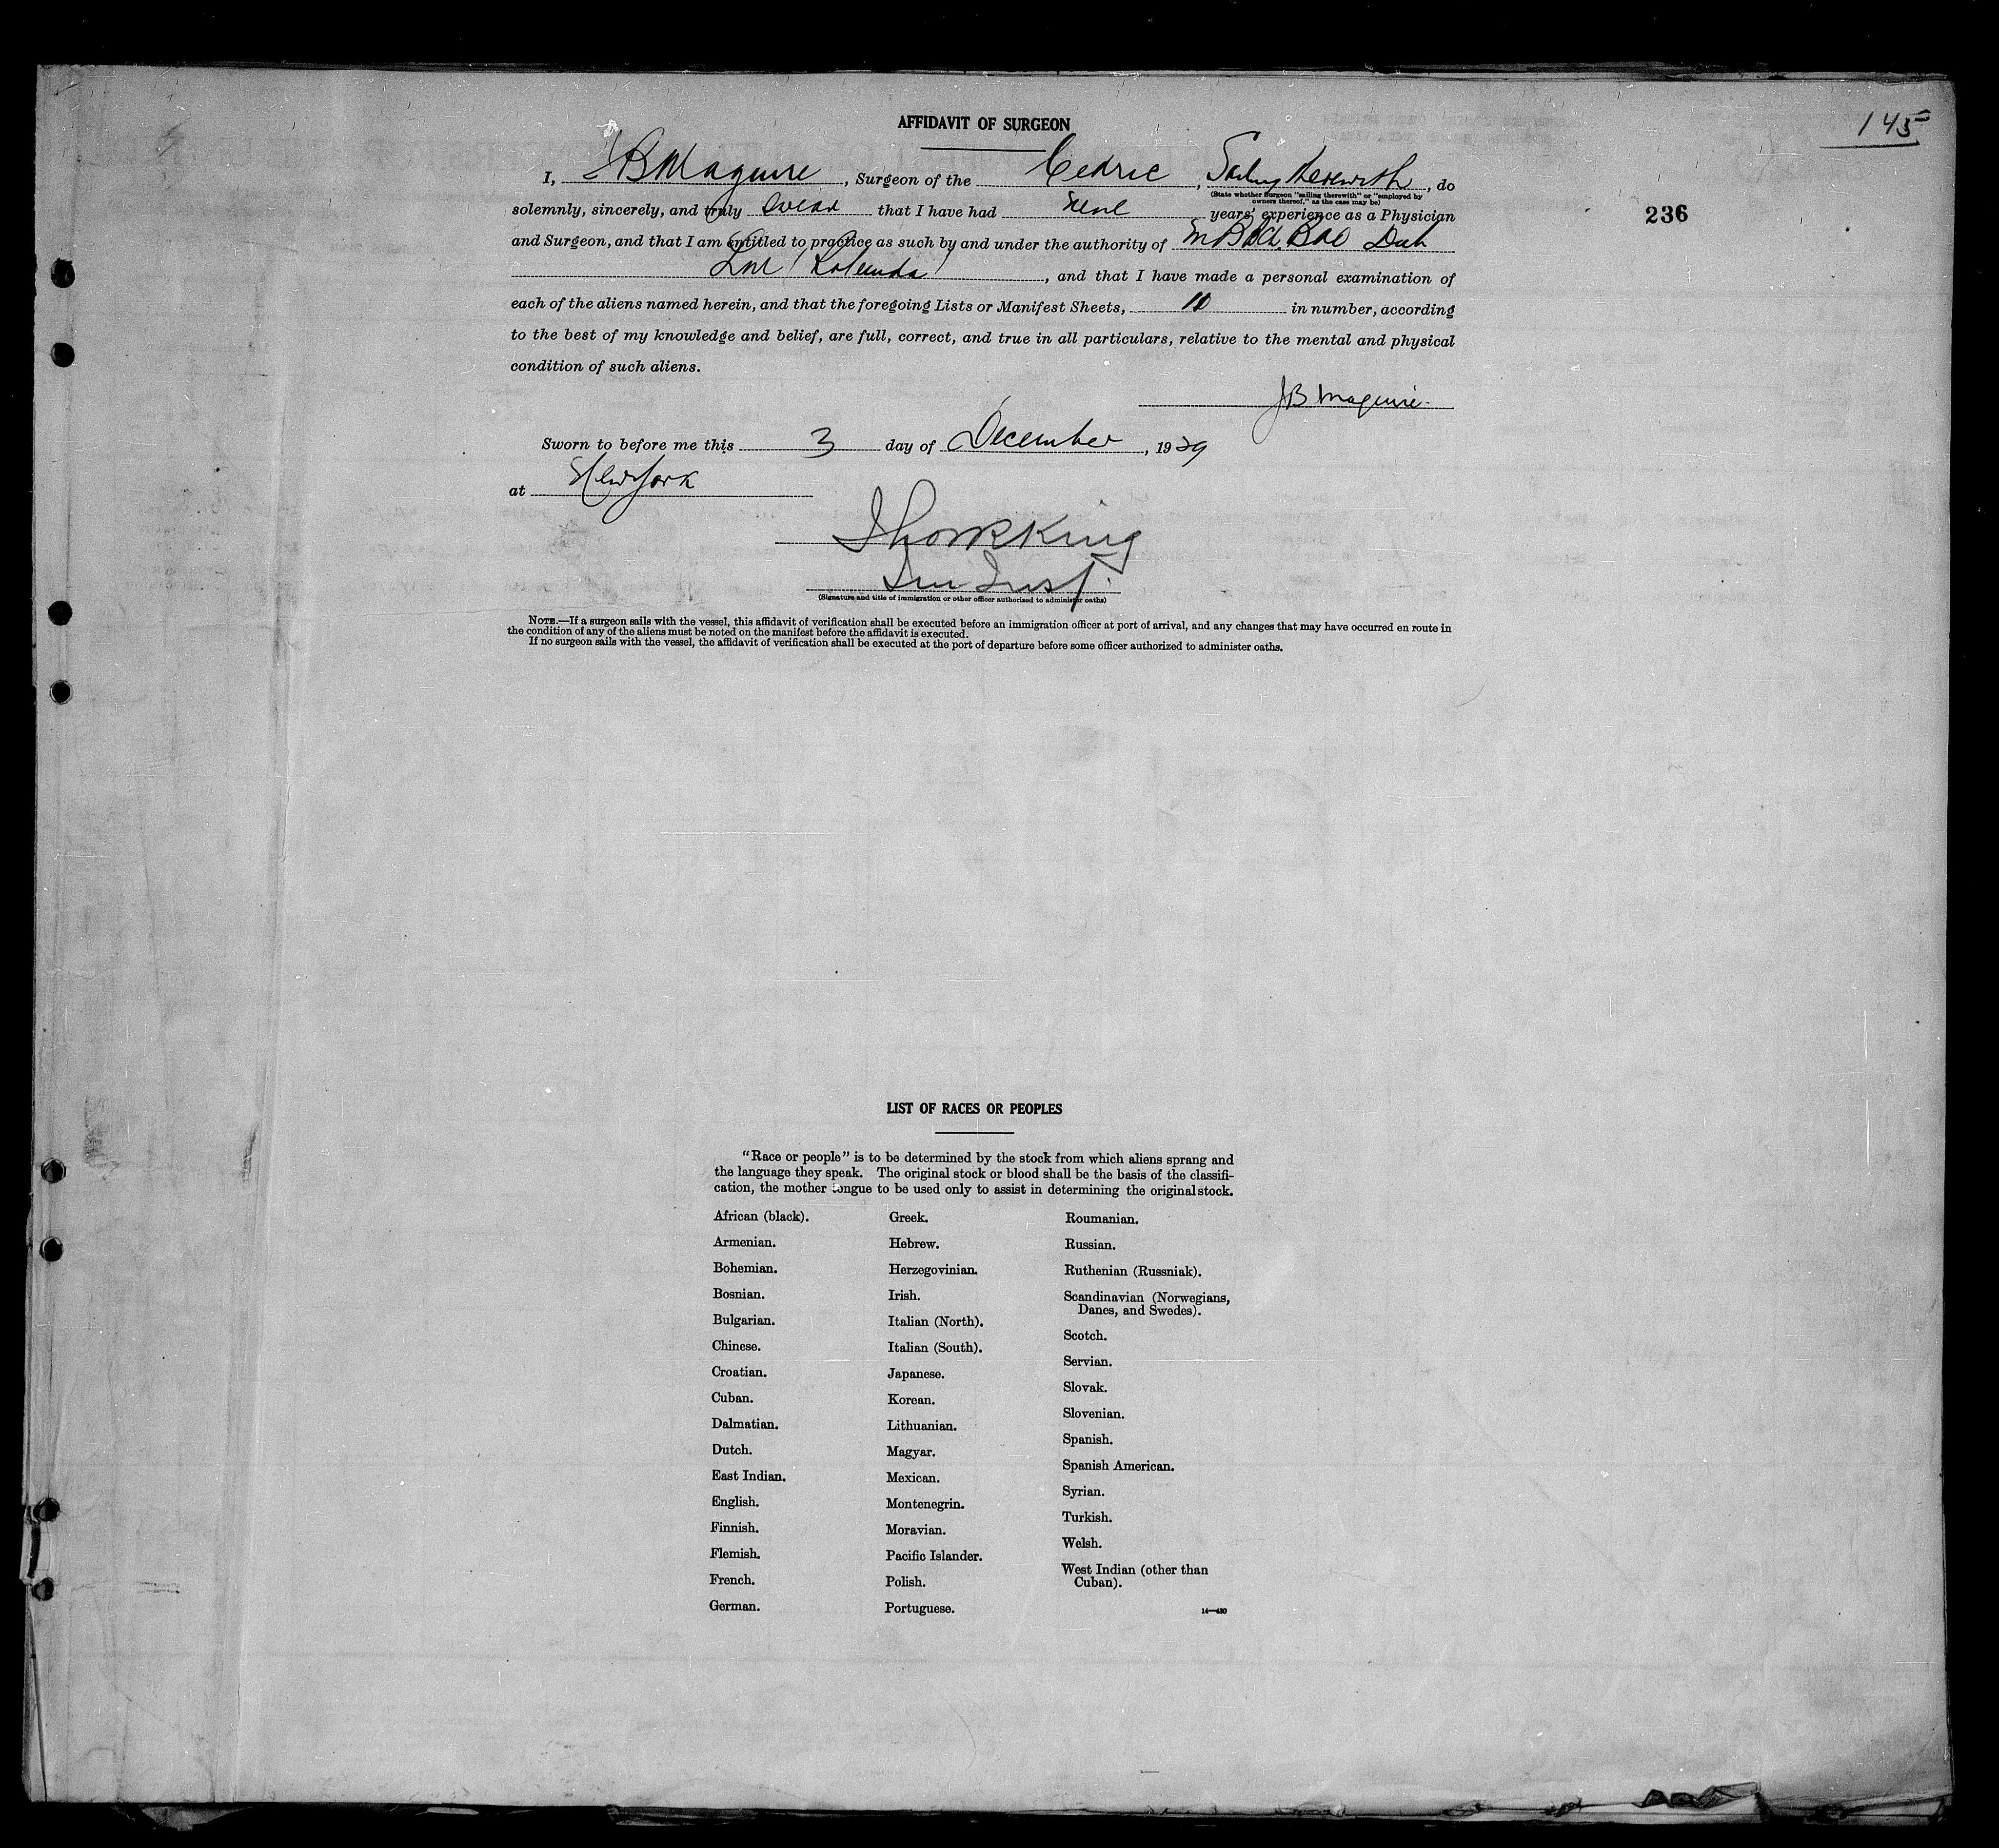 145
236
AFFIDAVIT OF SURGEON
I, JB Maguire, Surgeon of the Cedric, Sailing therewith, do
(State whether Surgeon "sailing therewith" or "employed by
owners thereof," as the case may be)
solemnly, sincerely, and truly swear that I have had years' experience as a Physician
and Surgeon, and that I am entitled to practice as such by and under the authority of
, and that I have made a personal examination of
each of the aliens named herein, and that the foregoing Lists or Manifest Sheets, in number, according
to the best of my knowledge and belief, are full, correct, and true in all particulars, relative to the mental and physical
condition of such aliens.
JB Maguire
Sworn to before me this 3 day of December, 1929
at New York
King
Imm Insp.
(Signature and title of immigration or other officer authorized to administer oaths)
NOTE.—If a surgeon sails with the vessel, this affidavit of verification shall be executed before an immigration officer at port of arrival, and any changes that may have occurred en route in
the condition of any of the aliens must be noted on the manifest before the affidavit is executed.
If no surgeon sails with the vessel, the affidavit of verification shall be executed at the port of departure before some officer authorized to administer oaths.
LIST OF RACES OR PEOPLES
"Race or people" is to be determined by the stock from which aliens sprang and
the language they speak. The original stock or blood shall be the basis of the classifi-
cation, the mother tongue to be used only to assist in determining the original stock.
African (black).
Armenian.
Bohemian.
Bosnian.
Bulgarian.
Chinese.
Croatian.
Cuban.
Dalmatian.
Dutch.
East Indian.
English.
Finnish.
Flemish.
French.
German.
Greek.
Hebrew.
Herzegovinian.
Irish.
Italian (North).
Italian (South).
Japanese.
Korean.
Lithuanian.
Magyar.
Mexican.
Montenegrin.
Moravian.
Pacific Islander.
Polish.
Portuguese.
Roumanian.
Russian.
Ruthenian (Russniak).
Scandinavian (Norwegians,
Danes, and Swedes).
Scotch.
Servian.
Slovak.
Slovenian.
Spanish.
Spanish American.
Syrian.
Turkish.
Welsh.
West Indian (other than
Cuban).
14—430